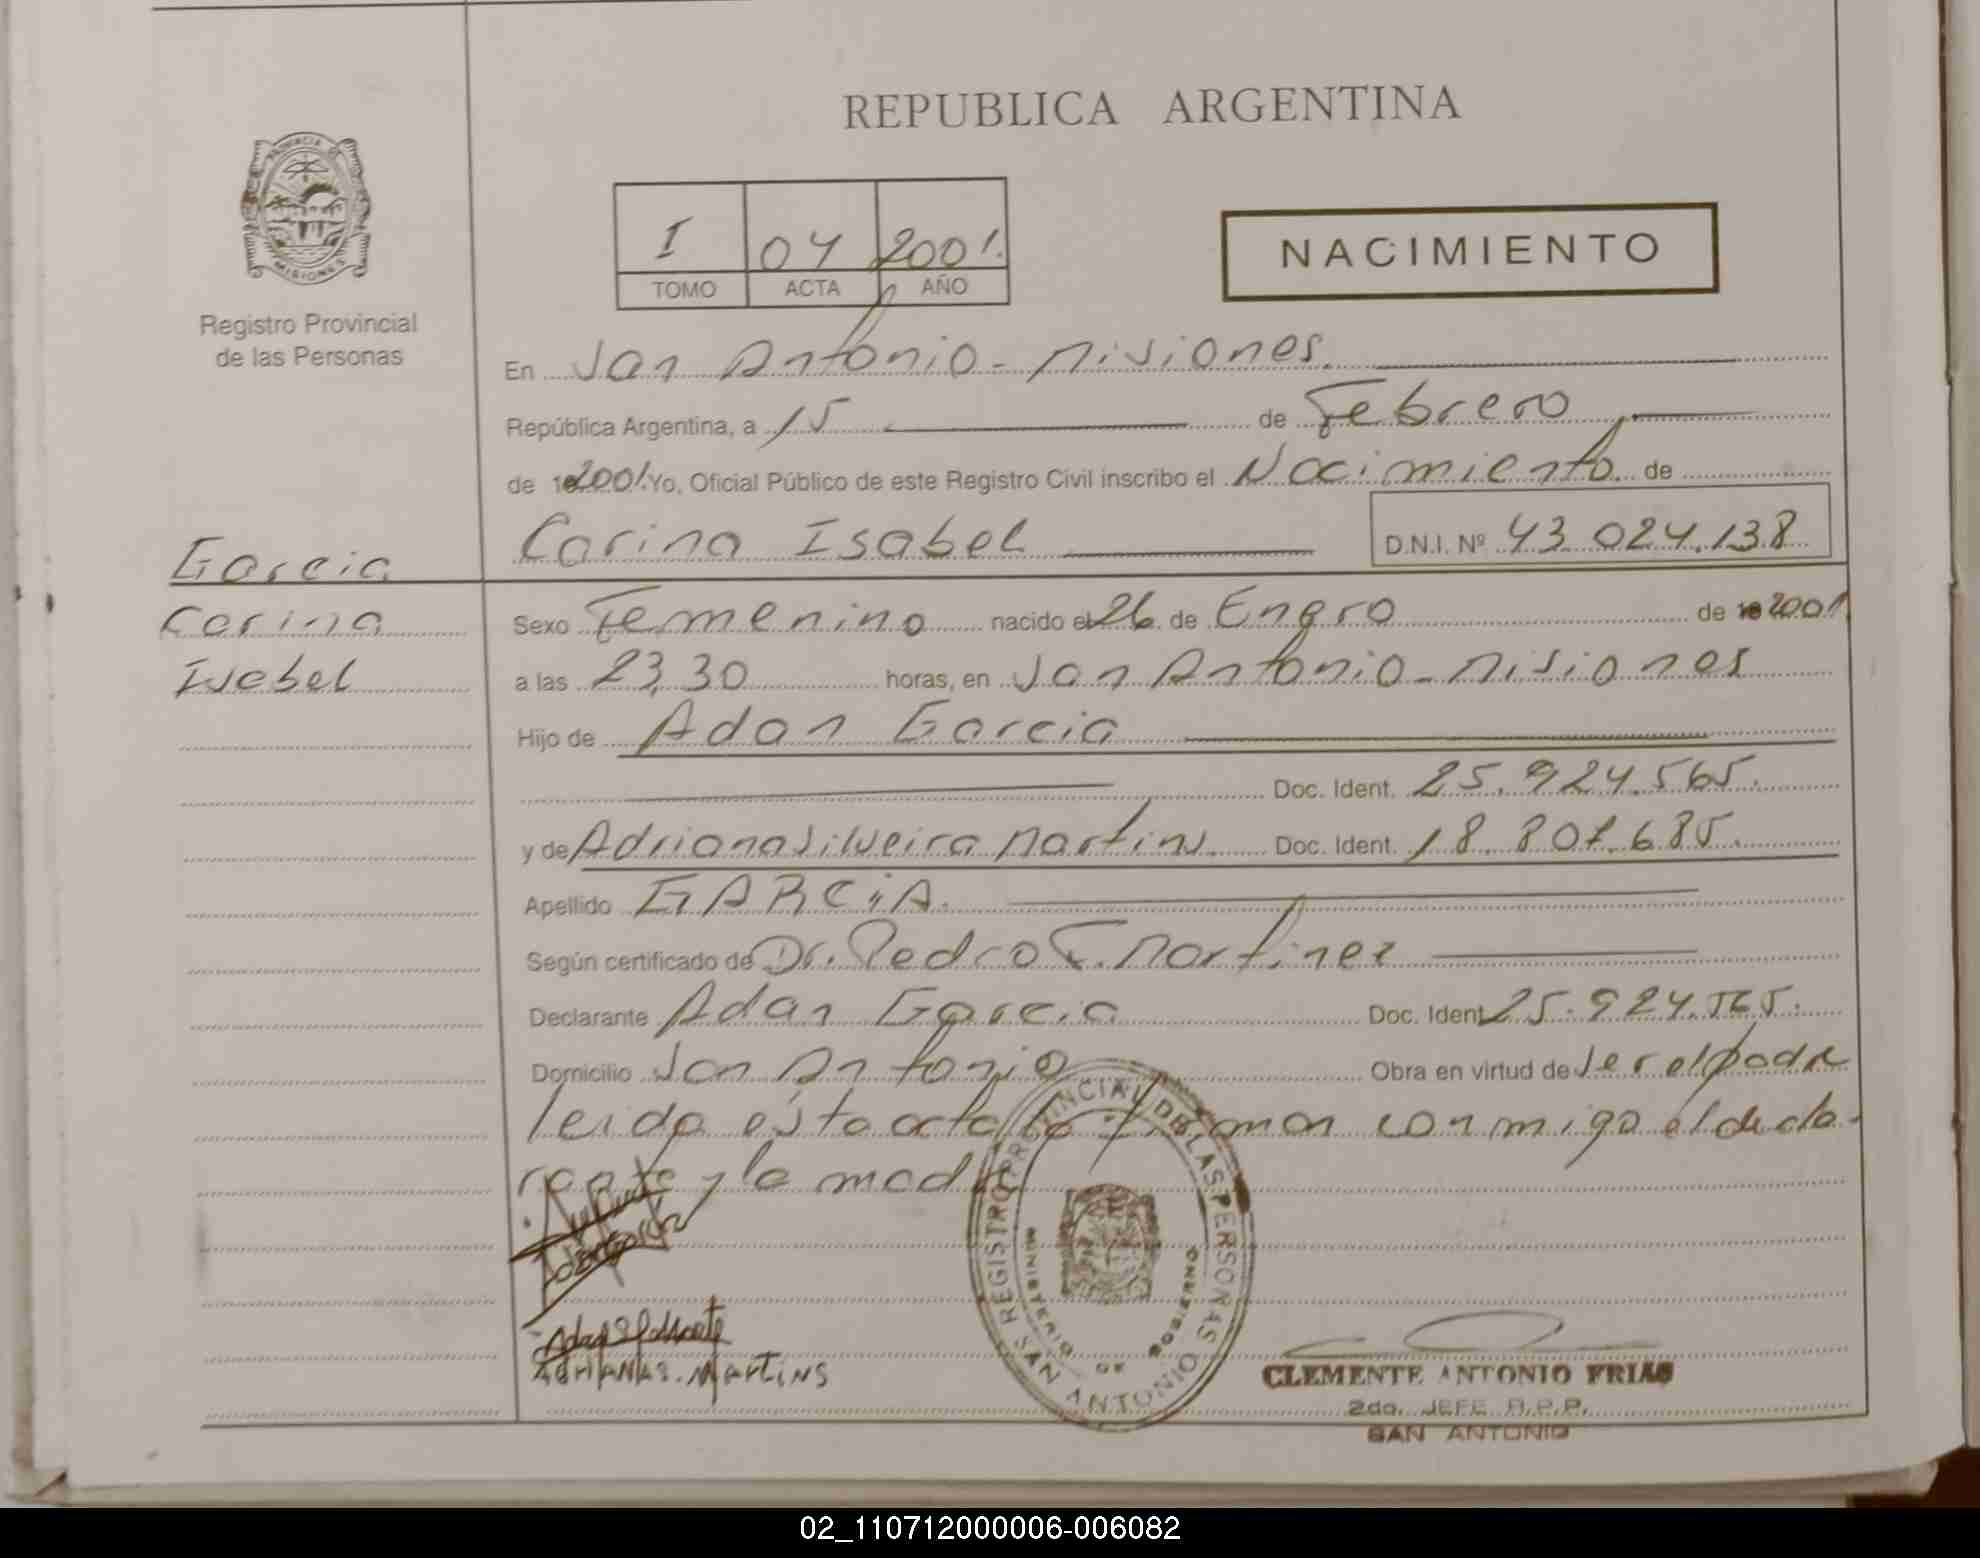 REPUBLICA ARGENTINA
PROVINCIA DE
MISIONES
Registro Provincial
de las Personas
I 04 2001.
TOMO ACTA AÑO
NACIMIENTO
En San Antonio - Misiones.
República Argentina, a 15 de Febrero
de 2001. Yo, Oficial Público de este Registro Civil inscribo el Nacimiento de
Carina Isabel D.N.I. Nº 43.024.138
Garcia
Carina
Isabel
Sexo Femenino nacido el 26 de Enero de 2001
a las 23,30 horas, en San Antonio - Misiones
Hijo de Adan Garcia
Doc. Ident. 25.924.565.
y de Adriana Silveira Martins. Doc. Ident. 18.801.685.
Apellido GARCiA.
Según certificado de Dr. Pedro F. Martinez
Declarante Adan Garcia Doc. Ident. 25.924.565.
Domicilio San Antonio Obra en virtud de ser el padre
leida ésta acta la firman conmigo el decla-
rante y la madre
ADRIANA S. MArTiNS
REGISTRO PROVINCIAL DE LAS PERSONAS
MINISTERIO DE GOBIERNO
SAN ANTONIO
CLEMENTE ANTONIO FRIAS
2do. JEFE R.P.P.
SAN ANTONIO
02_110712000006-006082